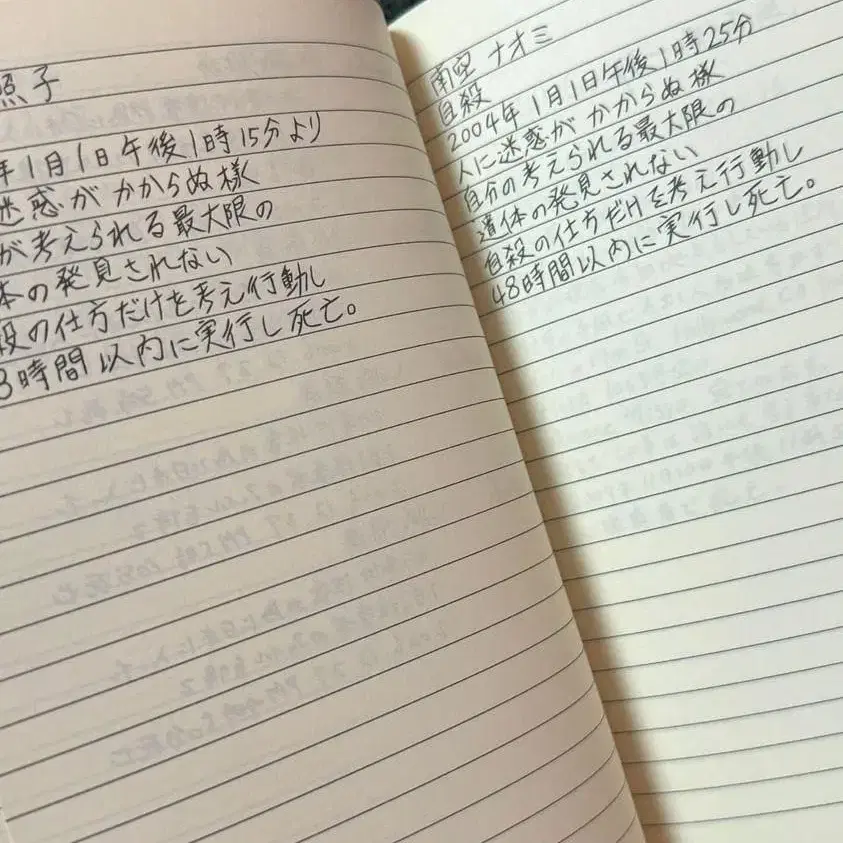 照子
年1月1日午後1時15分より
迷惑がかからぬ様
が考えられる最大限の
体の発見されない
殺の仕方だけを考え行動し
8時間以内に実行し死亡。
南空 ナオミ
自殺
2004年1月1日午後1時25分
人に迷惑がかからぬ様
自分の考えられる最大限の
遺体の発見されない
自殺の仕方だけを考え行動し
48時間以内に実行し死亡。